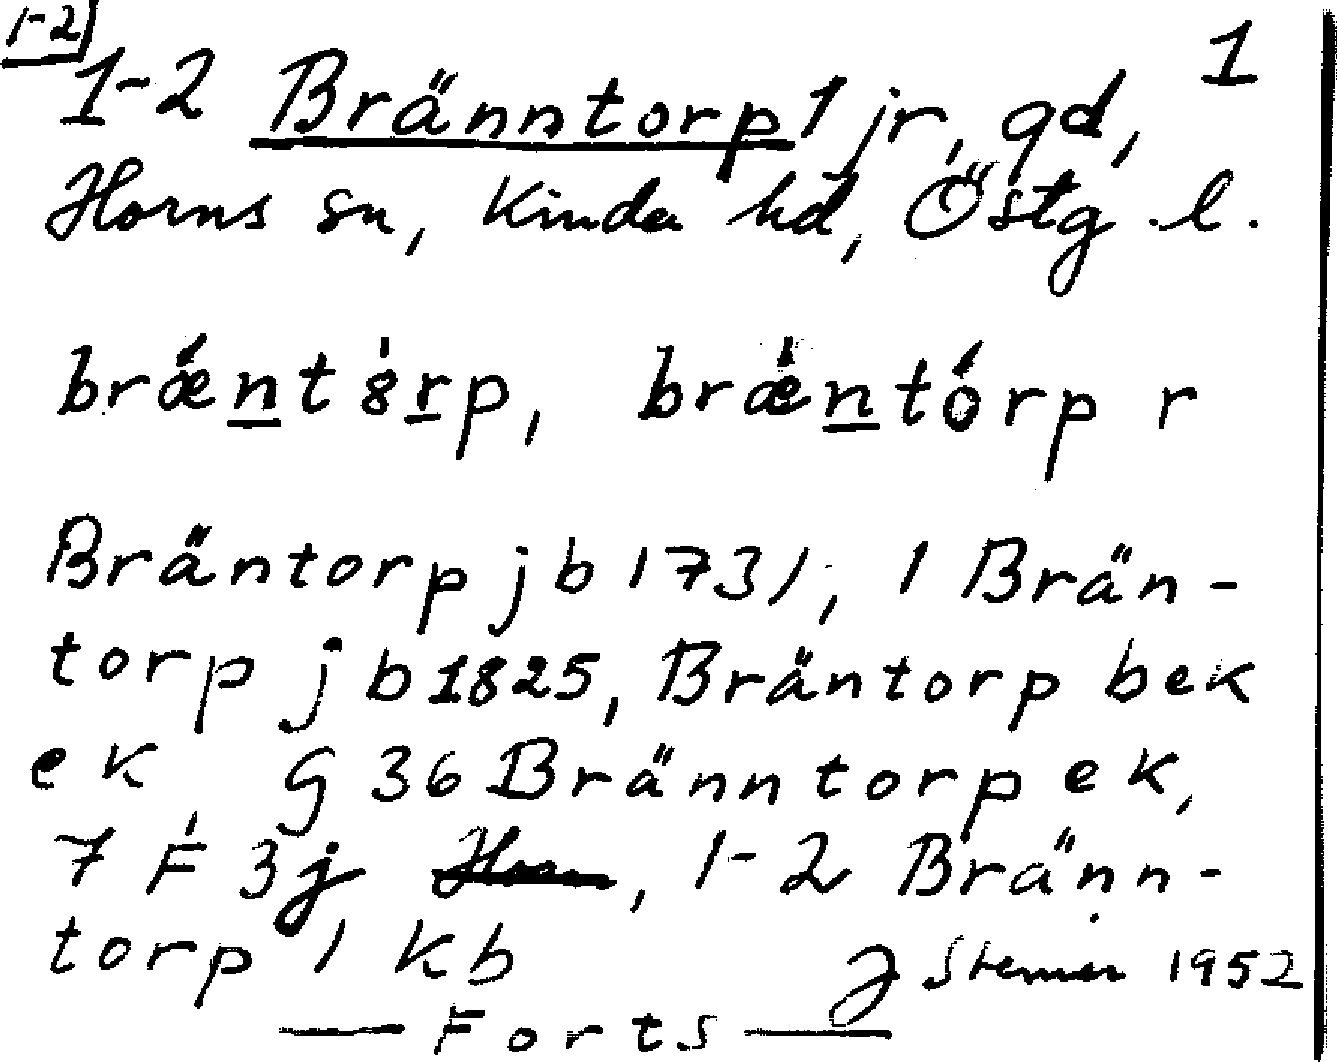 1-2
1
1-2 Bränntorp 1 jr, gd,
Horns sn, Kinda hd, Östg.l.
brǽntȣ́rp, brǽntórp r
Bräntorp jb 1731, 1 Brän-
torp jb 1825, Bräntorp bek
ek, G 36 Bränntorp ek,
7 F 3j, 1-2 Bränn-
torp 1 kb
J Stenner 1952
— Forts —